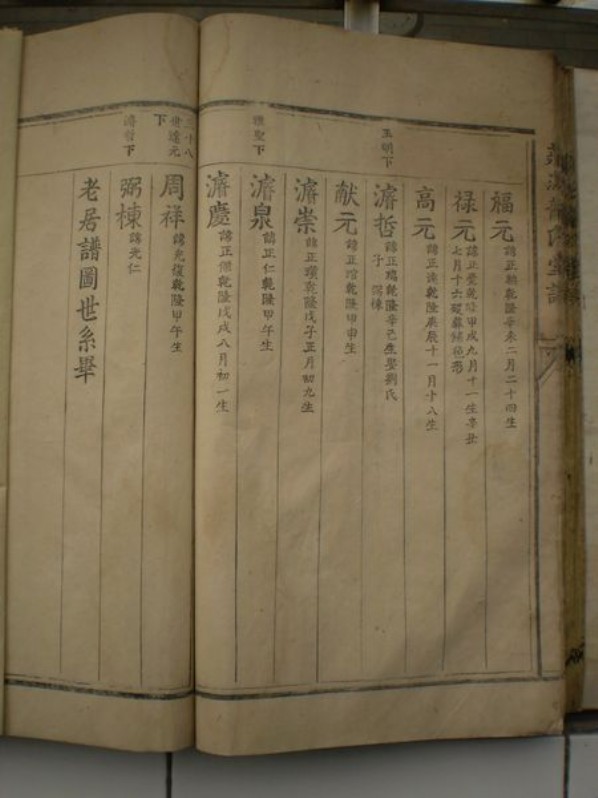 福元 諱正 乾隆辛未二月二十四生
禄元 諱正 乾隆甲戌九月十一生辛丑
七月十六 蘇 色形
玉明下
高元 諱正 乾隆庚辰十一月十八生
濬哲 諱正 乾隆辛巳生娶劉氏
子 弼棟
献元 諱正 乾隆甲申生
濬崇 諱正 乾隆戊子正月初九生
雅聖下
濬泉 諱正仁乾隆甲午生
濬慶 諱正傑乾隆戊戌八月初一生
三十八
世遠元
下
周祥 諱光復乾隆甲午生
濬哲下
弼棟 諱光仁
老居譜圖世系畢